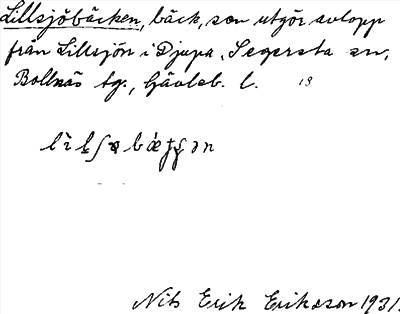 Lillsjöbäcken, bäck, som utgör avlopp
från Lillsjön i Djupa, Segersta sn,
Bollnäs tg., Gävleb. l. 13
Nils Erik Eriksson 1931.